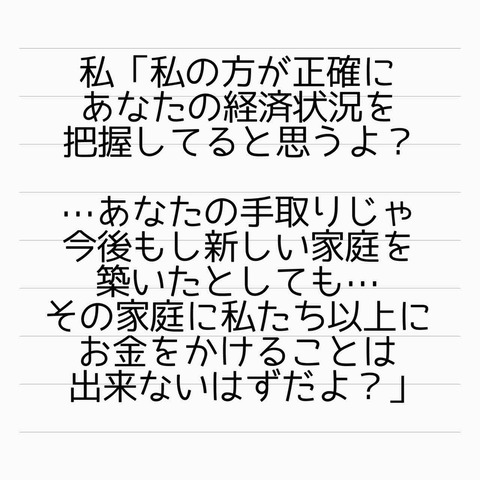 私「私の方が正確に
あなたの経済状況を
把握してると思うよ？
…あなたの手取りじゃ
今後もし新しい家庭を
築いたとしても…
その家庭に私たち以上に
お金をかけることは
出来ないはずだよ？」